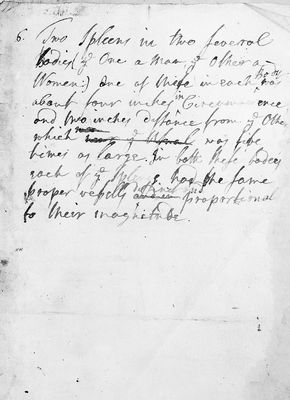 6. Two Spleens in two several
Bodies (ye One a Man ye Other a
Women:) One of these in each was
about four inches in Circumference
and two inches distance from ye Othe
which was five
times as large. In both these bodies
each of ye had the same
proper vessells proportional
to their magnitude